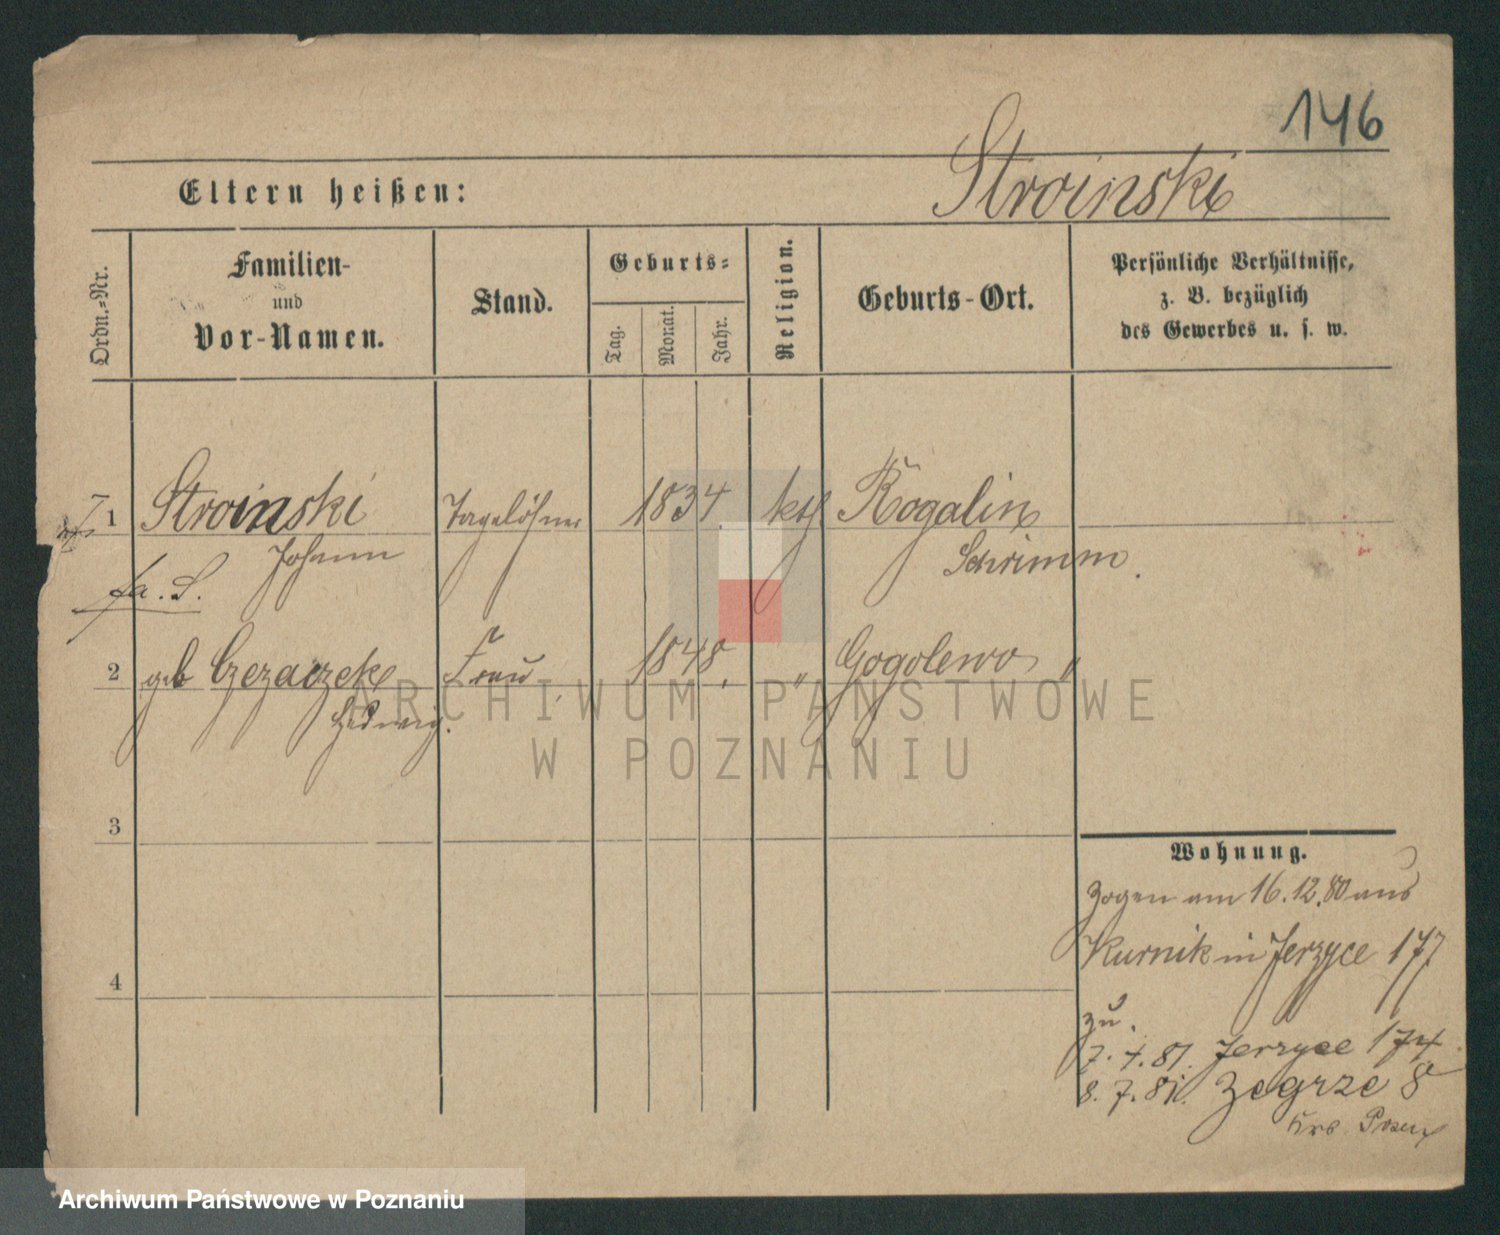 146
Eltern heißen: Stroinski
Ordn.-Nr.
Familien-
und
Vor-Namen.
Stand.
Geburts-
Tag.
Monat.
Jahr.
Religion.
Geburts-Ort.
Persönliche Verhältnisse,
z. B. bezüglich
des Gewerbes u. s. w.
1 Stroinski Tagelöhner 1834 kth Rogalin
Johann Schrimm.
fa. S.
2 geb Czezaczek Frau 1848. " Gogolewo "
Hedwig.
3
4
Wohnung.
Zogen am 16.12.80 aus
Kurnik in Jerzyce 177
zu.
7.4.81. Jerzyce 174
8.7.81. Zegrze 8
Krs. Posen
ARCHIWUM PAŃSTWOWE
W POZNANIU
Archiwum Państwowe w Poznaniu